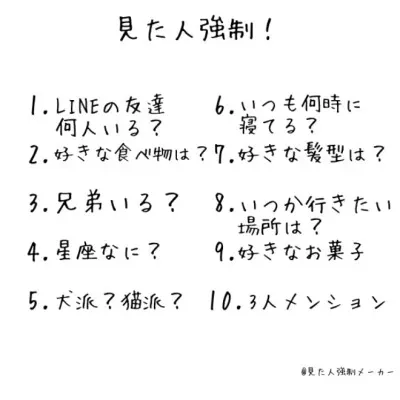 見た人強制！
1. LINEの友達
何人いる？
2. 好きな食べ物は？
3. 兄弟いる？
4. 星座なに？
5. 犬派？猫派？
6. いつも何時に
寝てる？
7. 好きな髪型は？
8. いつか行きたい
場所は？
9. 好きなお菓子
10. 3人メンション
#見た人強制メーカー